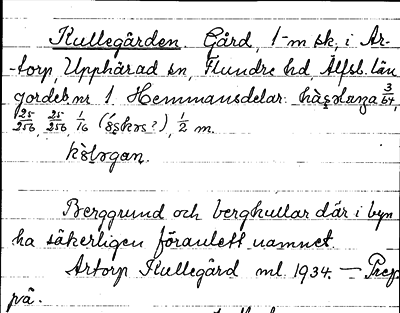 Kullegården. Gård, 1 m sk, i Ar-
-torp, Upphärad sn, Flundre hd, Älfsb. län
jordeb. nr 1. Hemmansdelar: 3/64,
25/256, 25/256, 1/16 ( ?), 1/2 m.
Berggrund och bergkullar där i byn
ha säkerligen föranlett namnet.
Artorp Kullegård ml. 1934. — Prep
på.